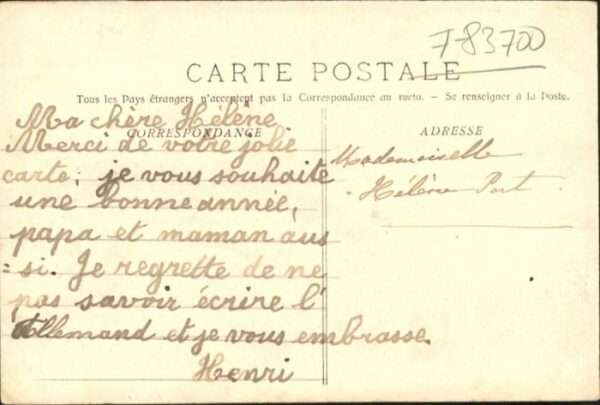 7-83700
CARTE POSTALE
Tous les Pays étrangers n'acceptent pas la Correspondance au recto. - Se renseigner à la Poste.
CORRESPONDANCE
Ma chère Hélène
Merci de votre jolie
carte; je vous souhaite
une bonne année,
papa et maman aus
=si. Je regrette de ne
pas savoir écrire l'
Allemand et je vous embrasse.
Henri
ADRESSE
Mademoiselle
Hélène Port